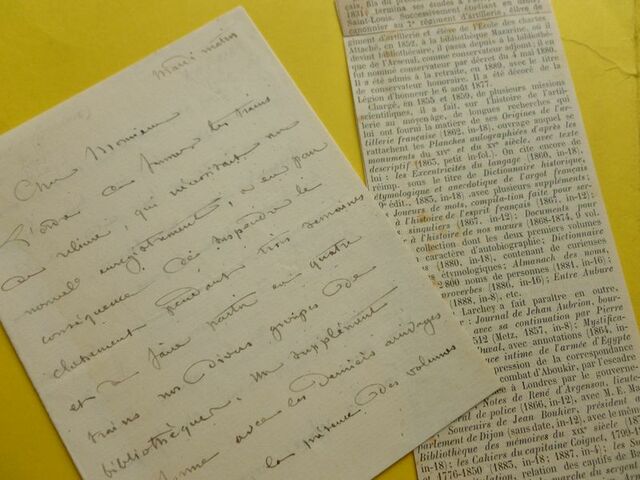 Mardi matin
Cher Monsieur
L'ordre de fermer les trains
de reliure, qui nécessitait un
nouvel enregistrement, a eu pour
conséquence de suspendre le
chargement pendant trois semaines
et de faire partir en quatre
trains nos divers groupes de
bibliothèques. Un supplément
avec les derniers arrivages
la présence des volumes
1831, termina ses études à
Saint-Louis. Successivement étudiant en droit,
canonnier au 2e régiment d'artillerie, élève de
giment d'artillerie et élève de l'École des chartes
Attaché, en 1852, à la bibliothèque Mazarine, où il
devint bibliothécaire, il passa depuis à la bibliothè-
que de l'Arsenal, comme conservateur adjoint; il en
fut nommé conservateur par décret du 4 mai 1880.
Il a été admis à la retraite, en 1889, avec le titre
de conservateur honoraire. Il a été décoré de la
Légion d'honneur le 6 août 1877.
Chargé, en 1855 et 1859, de plusieurs missions
scientifiques, il a fait, sur l'histoire de l'artil-
lerie au moyen âge, de longues recherches qui
lui ont fourni la matière de ses Origines de l'ar-
tillerie française (1862, in-18), ouvrage auquel se
rattachent les Planches autographiées d'après les
monuments du XIVe et du XVe siècle, avec texte
descriptif (1863, petit in-fol.). On cite encore de
lui : les Excentricités du langage (1860, in-18),
réimp. sous le titre de Dictionnaire historique,
étymologique et anecdotique de l'argot français
9e édit., 1885, in-18), avec plusieurs suppléments;
Joueurs de mots, compilation faite pour ser-
à l'histoire de l'esprit français (1867, in-12);
singuliers (1867, in-12); Documents pour
à l'histoire de nos mœurs (1868-1874, 9 vol.
collection dont les deux premiers volumes
caractère d'autobiographie; Dictionnaire
(1880, in-12), contenant de curieuses
étymologiques; Almanach des noms,
2 800 noms de personnes (1881, in-16);
proverbes (1886, in-16); Entre Aubure
(1888, in-8), etc.
Larchey a fait paraître en outre,
: Journal de Jehan Aubrion, bour-
avec sa continuation par Pierre
1512 (Metz, 1857, in-8); Mystifica-
avec annotations (1864, in-
intime de l'armée d'Egypte
impression de la correspondance
combat d'Aboukir, par l'escadre
à Londres par le gouverne-
Notes de René d'Argenson, lieute-
de police (1866, in-12), avec M. E. Ma-
Souvenirs de Jean Bouhier, président
parlement de Dijon (sans date, in-12), avec le même
Bibliothèque des mémoires du XIXe siècle (1871,
in-18); les Cahiers du capitaine Coignet, 1799-
(1883, in-18; 1887, in-4); les
et 1776-1850 (1885, in-18)
relation des captifs de B